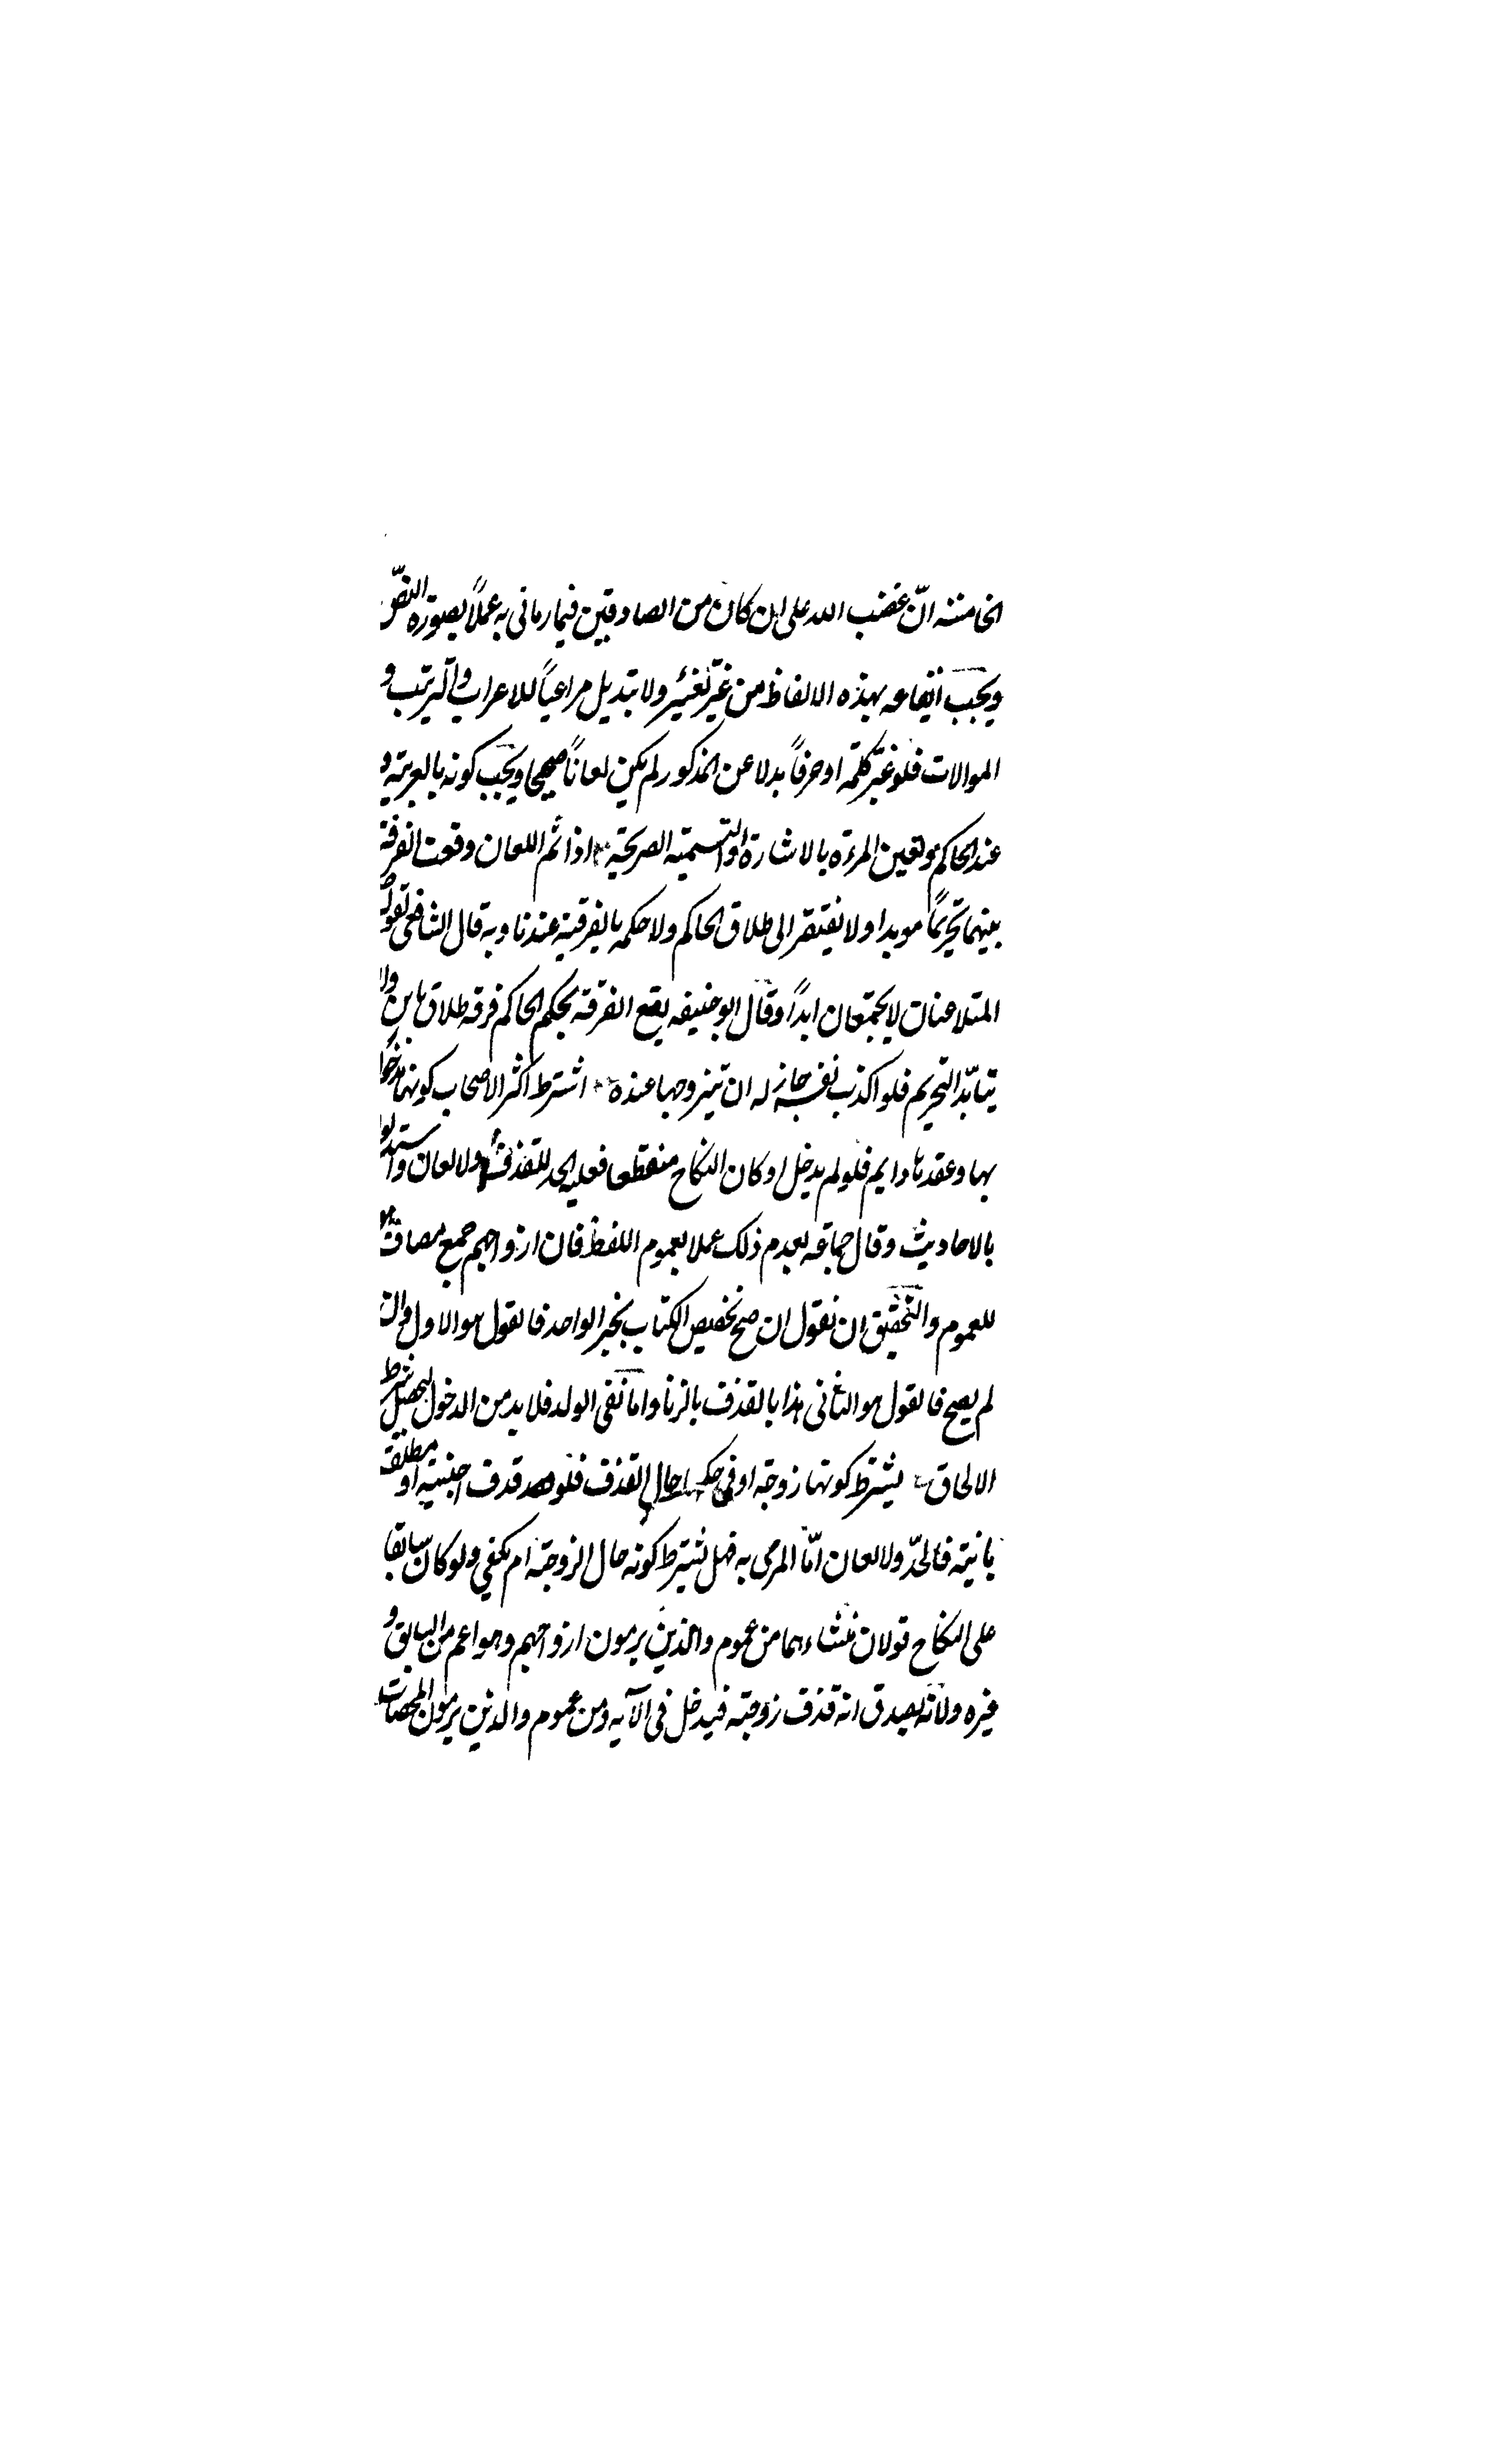 الخامسة انّ غضب الله على ان كان من الصادقين فيما رماني به عملاً بصورة النصّ
ويجب ايقاعه بهذه الالفاظ من غير تغيير ولا تبديل مراعياً للاعراب والترتيب و
الموالات فلو غيّر كلمة او حرفاً بدلا عن المذكور لم يكن لعاناً صحيحا ويجب كونه بالعربية و
عند الحاكم وتعين المرءة بالاشارة او التسمية الصريحة اذا تم اللعان وقعت الفرقة
بينهما تحريماً موبدا ولا يفتقر الى طلاق الحاكم ولا حكمه بالفرقة عندنا وبه قال الشافعي لقوله
المتلاعنان لا يجتمعان ابداً وقال ابو حنيفه يقع الفرقة بحكم الحاكم فرقه طلاق باين ولا
يتأبّد التحريم فلو اكذب نفسه جاز له ان يتزوجها عنده اشترط اكثر الاصحاب كونها مدخولا
بها وعقدها دايم فلو لم يدخل او كان النكاح منقطعا فعليه الحد للقذف ولا لعان واستدلوا
بالاحاديث وقال جماعه بعدم ذلك عملا بعموم اللفظ فان ازواجهم جمع مضاف
للعموم والتحقيق ان نقول ان صح تخصيص الكتاب بخبر الواحد فالقول هو الاول وان
لم يصح فالقول هو الثاني هذا بالقذف بالزنا واما نفى الولد فلا بد من الدخول ليحصل شرط
الالحاق يشترط كونها زوجة او في حكمها حال القذف فلو قذف اجنبيه او مطلقة
باينة فالحدّ ولا لعان امّا المرمى به فهل يشترط كونه حال الزوجية ام يكفي ولو كان سابقا
على النكاح قولان منشاءهما من عموم والذين يرمون ازواجهم وهو اعم من السابق و
غيره ولانه يصدق انه قذف زوجته فيدخل في الآيه ومن عموم والذين يرمون المحصنات